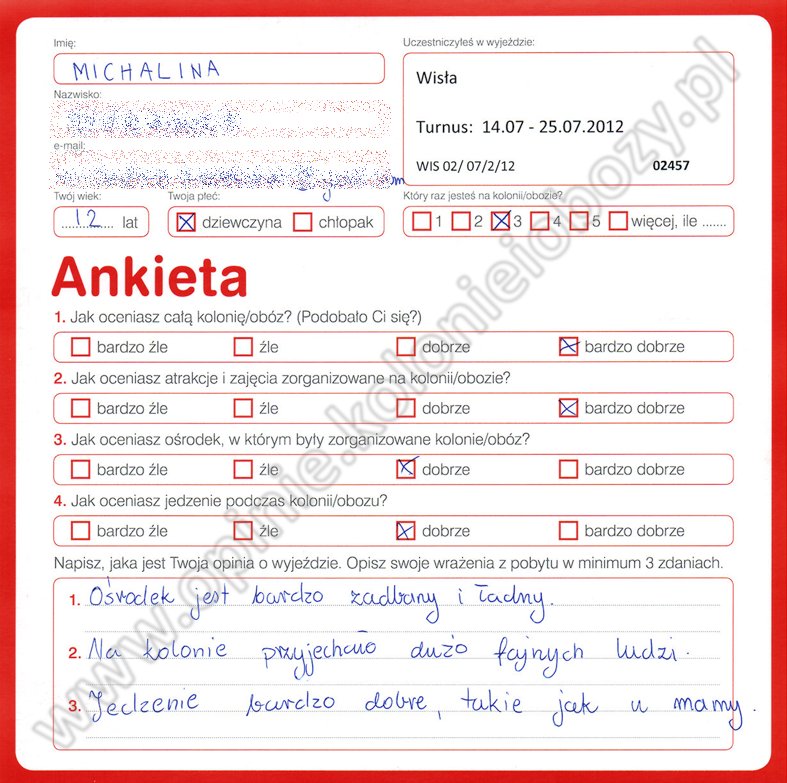 Imię:
MICHALINA
Nazwisko:
e-mail:
Twój wiek:
12 lat
Twoja płeć:
dziewczyna chłopak
Uczestniczyłeś w wyjeździe:
Wisła
Turnus: 14.07 - 25.07.2012
WIS 02/ 07/2/12 02457
Który raz jesteś na kolonii/obozie?
1 2 3 4 5 więcej, ile .......
Ankieta
1. Jak oceniasz całą kolonię/obóz? (Podobało Ci się?)
bardzo źle źle dobrze bardzo dobrze
2. Jak oceniasz atrakcje i zajęcia zorganizowane na kolonii/obozie?
bardzo źle źle dobrze bardzo dobrze
3. Jak oceniasz ośrodek, w którym były zorganizowane kolonie/obóz?
bardzo źle źle dobrze bardzo dobrze
4. Jak oceniasz jedzenie podczas kolonii/obozu?
bardzo źle źle dobrze bardzo dobrze
Napisz, jaka jest Twoja opinia o wyjeździe. Opisz swoje wrażenia z pobytu w minimum 3 zdaniach.
1. Ośrodek jest bardzo zadbany i ładny.
2. Na kolonie przyjechało dużo fajnych ludzi.
3. Jedzenie bardzo dobre, takie jak u mamy.
www.opinie.kolonieiobozy.pl